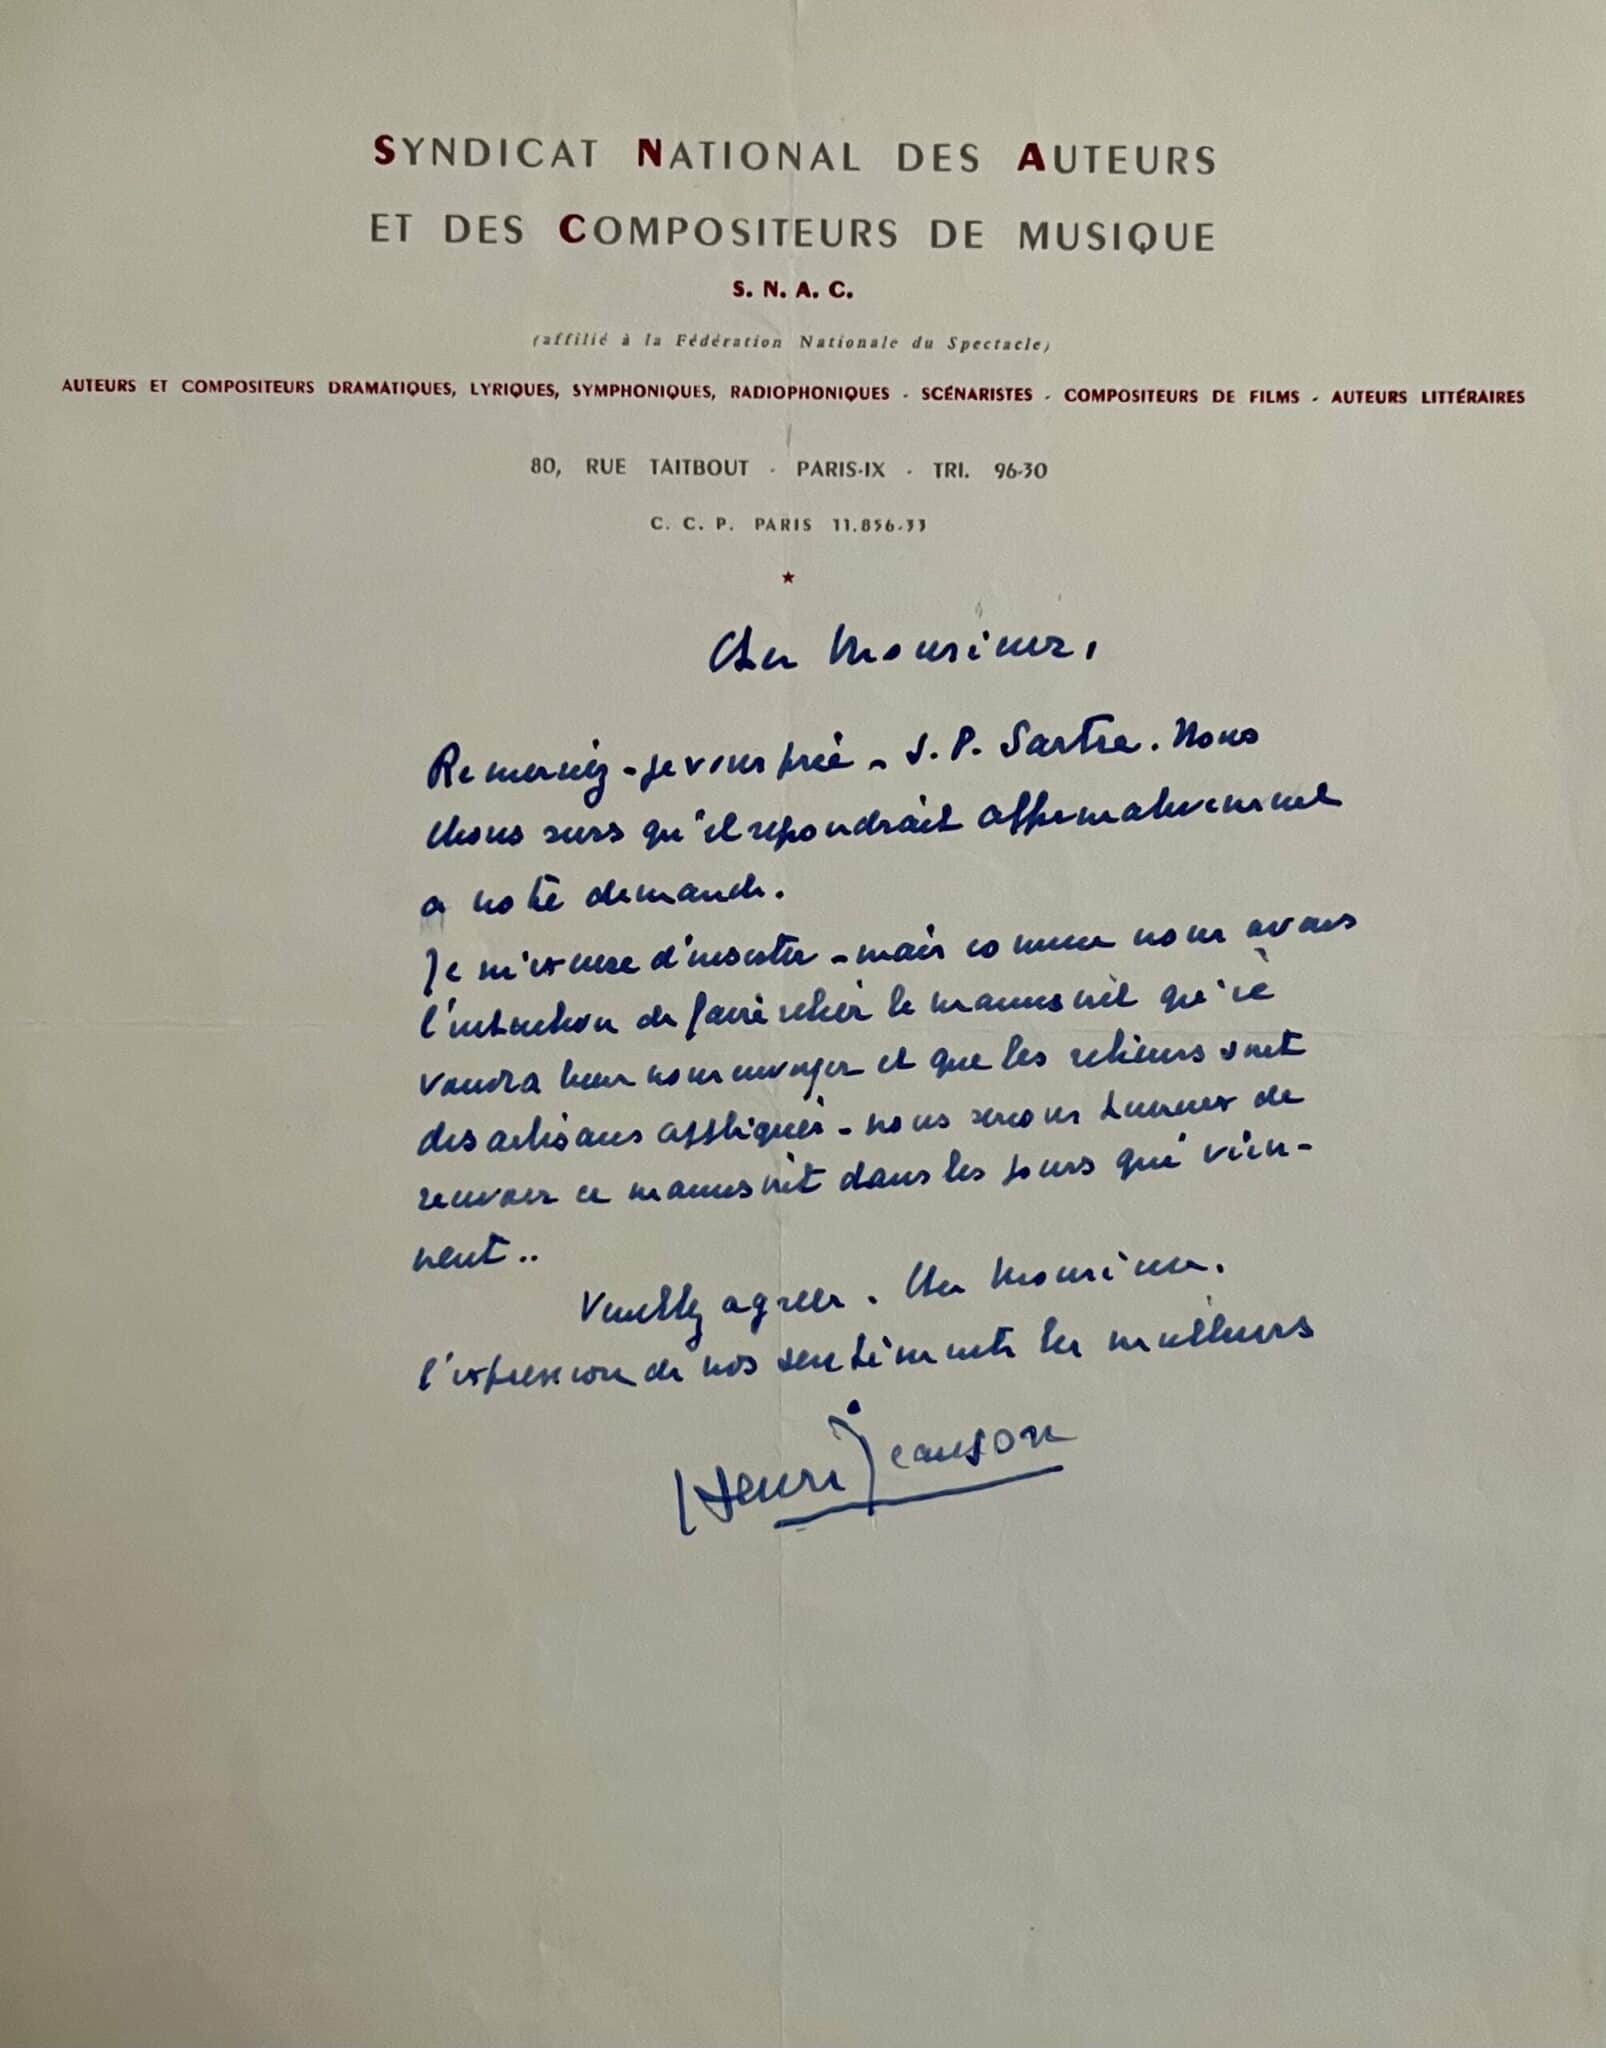 SYNDICAT NATIONAL DES AUTEURS
ET DES COMPOSITEURS DE MUSIQUE
S. N. A. C.
(affilié à la Fédération Nationale du Spectacle)
AUTEURS ET COMPOSITEURS DRAMATIQUES, LYRIQUES, SYMPHONIQUES, RADIOPHONIQUES - SCÉNARISTES - COMPOSITEURS DE FILMS - AUTEURS LITTÉRAIRES
80, RUE TAITBOUT - PARIS-IX - TRI. 96-30
C. C. P. PARIS 11.856-33
★
Cher Monsieur,
Remerciez - je vous prie - J. P. Sartre. Nous
étions surs qu'il repondrait affirmativement
a notre demande.
Je m'excuse d'insister - mais comme nous avons
l'intention de faire relier le manuscrit qu'il
voudra bien nous envoyer et que les relieurs sont
des artisans appliqués - nous serions heureux de
recevoir ce manuscrit dans les jours qui vien-
nent..
Veuillez agreer. Cher Monsieur.
l'expression de nos sentiments les meilleurs
Henri Jeanson